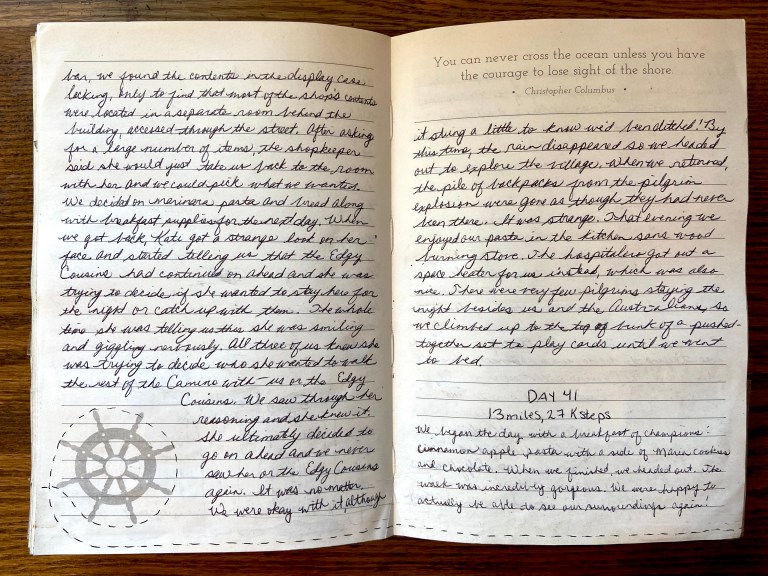 bar, we found the contents in the display case
lacking, only to find that most of the shop's contents
were located in a separate room behind the
building, accessed through the street. After asking
for a large number of items, the shopkeeper
said she would just take us back to the room
with her and we could pick what we wanted.
We decided on marinera pasta and bread along
with breakfast supplies for the next day. When
we got back, Kate got a strange look on her
face and started telling us that the Edgy
Cousins had continued on ahead and she was
trying to decide if she wanted to stay here for
the night or catch up with them. The whole
time she was telling us this she was smiling
and giggling nervously. All three of us knew she
was trying to decide who she wanted to walk
the rest of the Camino with - us or the Edgy
Cousins. We saw through her
reasoning and she knew it.
She ultimately decided to
go on ahead and we never
saw her or the Edgy Cousins
again. It was no matter.
We were okay with it although
You can never cross the ocean unless you have
the courage to lose sight of the shore.
• Christopher Columbus •
it stung a little to know we'd been ditched! By
this time, the rain disappeared so we headed
out to explore the village. When we returned,
the pile of backpacks from the pilgrim
explosion were gone as though they had never
been there. It was strange. That evening we
enjoyed our pasta in the kitchen sans wood
burning stove. The hospitalero got out a
space heater for us instead, which was also
nice. There were very few pilgrims staying the
night besides us and the Australians, so
we climbed up to the top bunk of a pushed-
together set to play cards until we went
to bed.
DAY 41
13 miles, 27K steps
We began the day with a breakfast of champions:
cinnamon apple pasta with a side of Maria cookies
and chocolate. When we finished, we headed out. The
walk was incredibly gorgeous. We were happy to
actually be able to see our surroundings again!